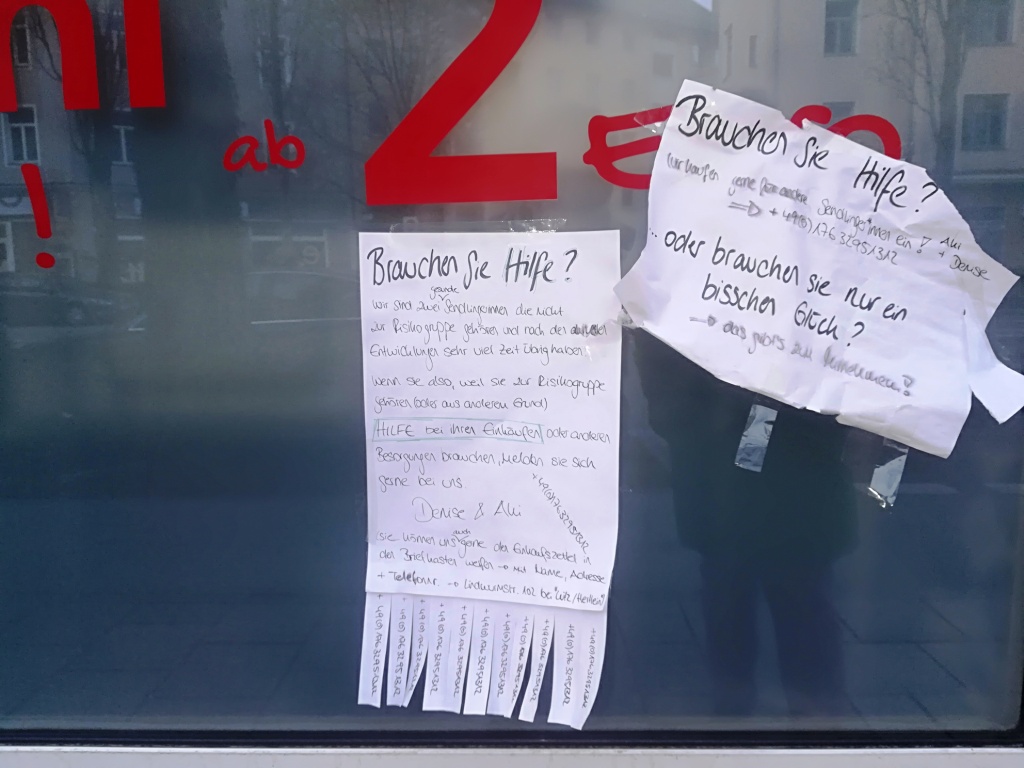 ab 2
!
Brauchen Sie Hilfe?
gesunde
Wir sind zwei Sendlingerinnen die nicht
zur Risikogruppe gehören und nach den aktuellen
Entwicklungen sehr viel Zeit übrig haben.
Wenn sie also, weil sie zur Risikogruppe
gehören (oder aus anderem Grund)
HILFE bei ihren Einkäufen oder anderen
Besorgungen brauchen, melden sie sich
gerne bei uns.
+49(0)17632951312
Denise & Aki
auch
Sie können uns gerne den Einkaufszettel in
den Briefkasten werfen → mit Name, Adresse
+ Telefonnr. → Lindwurmstr. 102 bei
+49(0)17632951312
+49(0)17632951312
+49(0)17632951312
+49(0)17632951312
+49(0)17632951312
+49(0)17632951312
+49(0)17632951312
+49(0)17632951312
+49(0)17632951312
+49(0)17632951312
Brauchen Sie Hilfe?
Wir kaufen gerne für andere Sendlinger*innen ein!
⇒ +49(0)17632951312
Aki + Denise
... oder brauchen sie nur ein
bisschen Glück?
→ das gibts zum Mitnehmen!